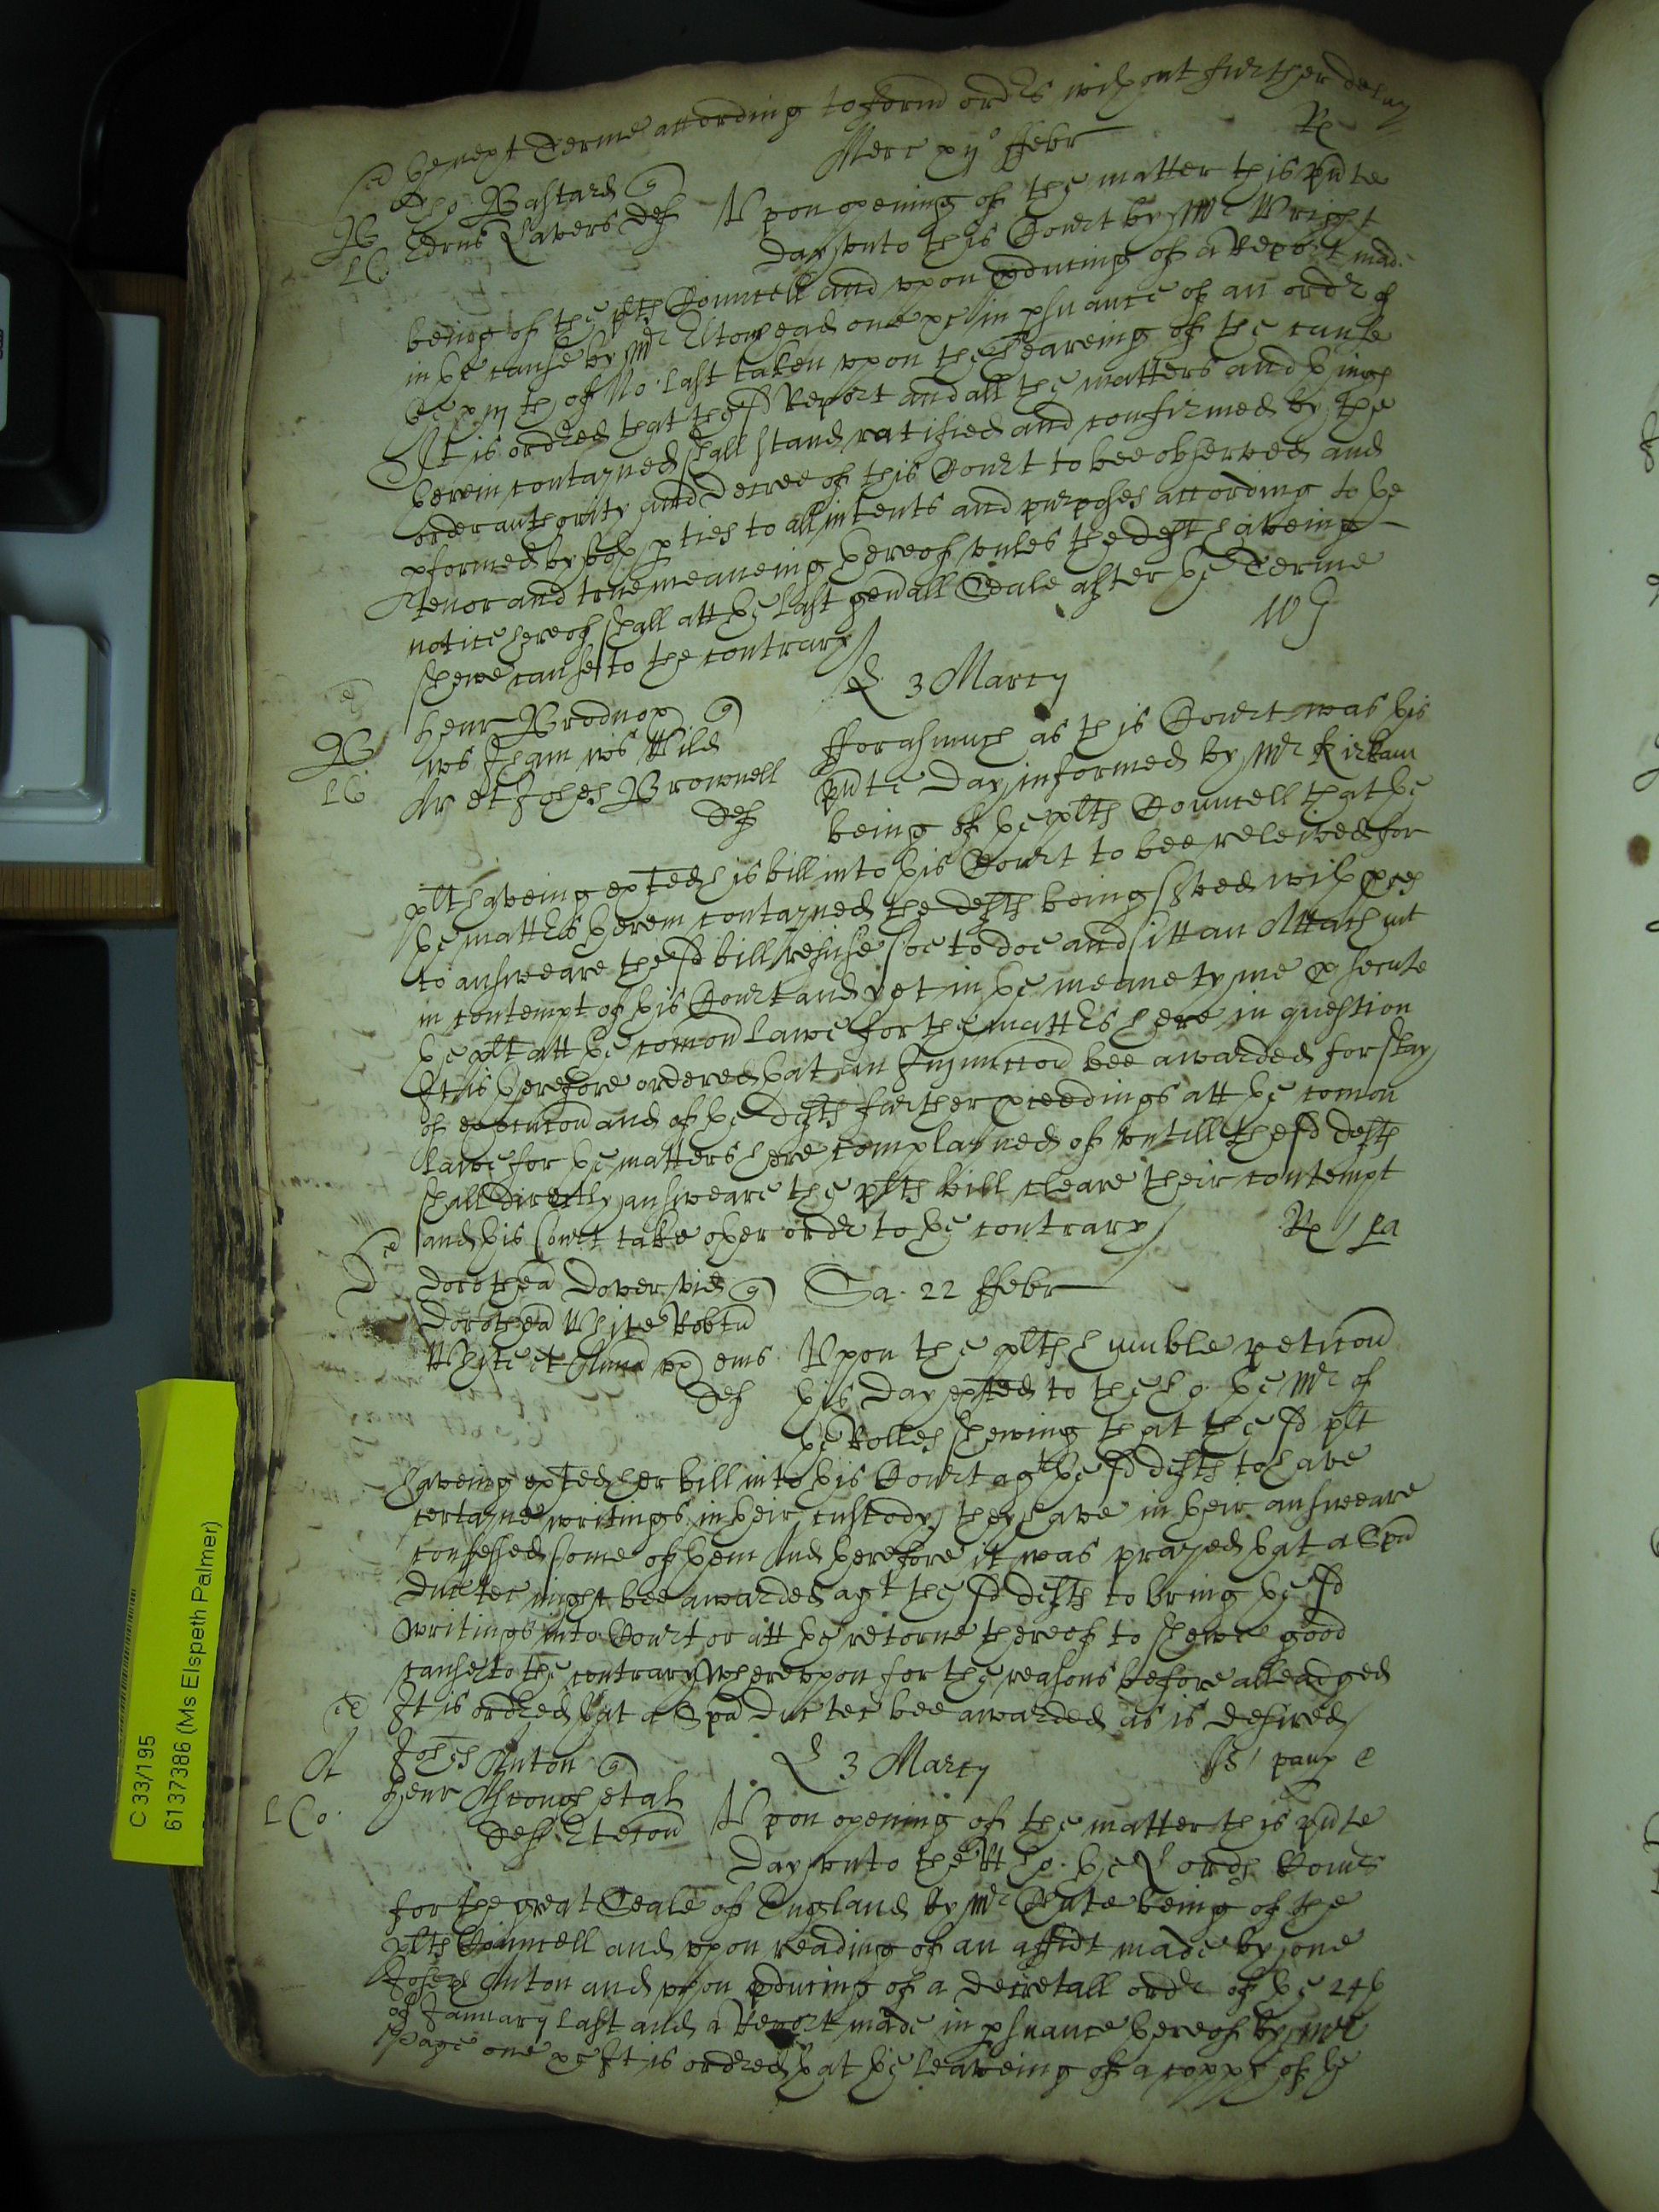 ye next Terme according to form ordrs without further delay
Rp
Merc xijo ffebr
Tho: Bastard q
Edrus Lavers Def
B
LC
Upon opening of the matter this pnte
day unto this Court by Mr Wright
being of the plts Councell and upon pduceing of a Report made
in ye cause by Mr Eltonhead one &c in psuance of an ordr of
ye xiijth of No: last taken upon the heareing of the cause
It is ordred that the sd Report and all the matters and things
therein contayned shall stand ratified and confirmed by the
order authority and decree of this Court to bee observed and
pformed by both pties to all intents and purposes according to ye
tenor and true meaneing thereof unles the deft haveing
notice hereof shall att ye last genall Seale after ye Terme
shewe cause to the contrary
WG
L 3 Marcij
Henr Brodnox q
B
LC
Ar et Joseph Brownell
Def
fforasmuch as this Court was this
pnte day informed by Mr Kirkam
being of ye plts Councell that ye
plt haveing exhted his bill into this Court to bee releived for
ye mattrs therein contayned the defts being served with pces
to answeare the sd bill refuse soe to doe and sitt an Attachmt
in contempt of this Court and yet in ye meane tyme psecute
ye plt att ye comon lawe for the mattrs here in question
It is therefore ordered that an Injunccon bee awarded for stay
of execucon and of ye defts further pceedings att ye comon
lawe for ye matters here complayned of untill the sd defts
shall directly answeare the plts bill cleare their contempt
and this Court take other ordr to ye contrary
Rp / La
D
Dorothea Dover vid q
Dorothea White Robtu
White et Anna ux eius
Def
Sa. 22 ffebr
Upon the plts humble peticon
this day exhted to the Ho. ye Mr of
ye Rolles shewing that the sd plt
haveing exhted her bill into this Court agt ye sd defts to have
certayne writings in their custody they have in their answeare
confessed some of them And therefore it was prayed that a Spa
duc tec might bee awarded agt the sd defts to bring ye sd
writings into Court or att ye retorne thereof to shewe good
cause to the contrary Whereupon for the reasons before alleadged
It is ordred that a Spa duc tec bee awarded as is desired
A
LCo.
Joseh Anton q
Henr et al
Def
L 3 Marcij
Upon opening of the matter this pnte
day unto the Rt Ho. ye Lords Comrs
for the great Seale of England by Mr Chute being of the
plts Councell and upon reading of an affidt made by one
Joseph Anton and upon pduceing of a decretall ordr of ye 24th
of January last and a Report made in psuance thereof by Mr
Page one &c It is ordred that ye leaveing of a coppy of ye
C 33/195
6137386 (Ms Elspeth Palmer)